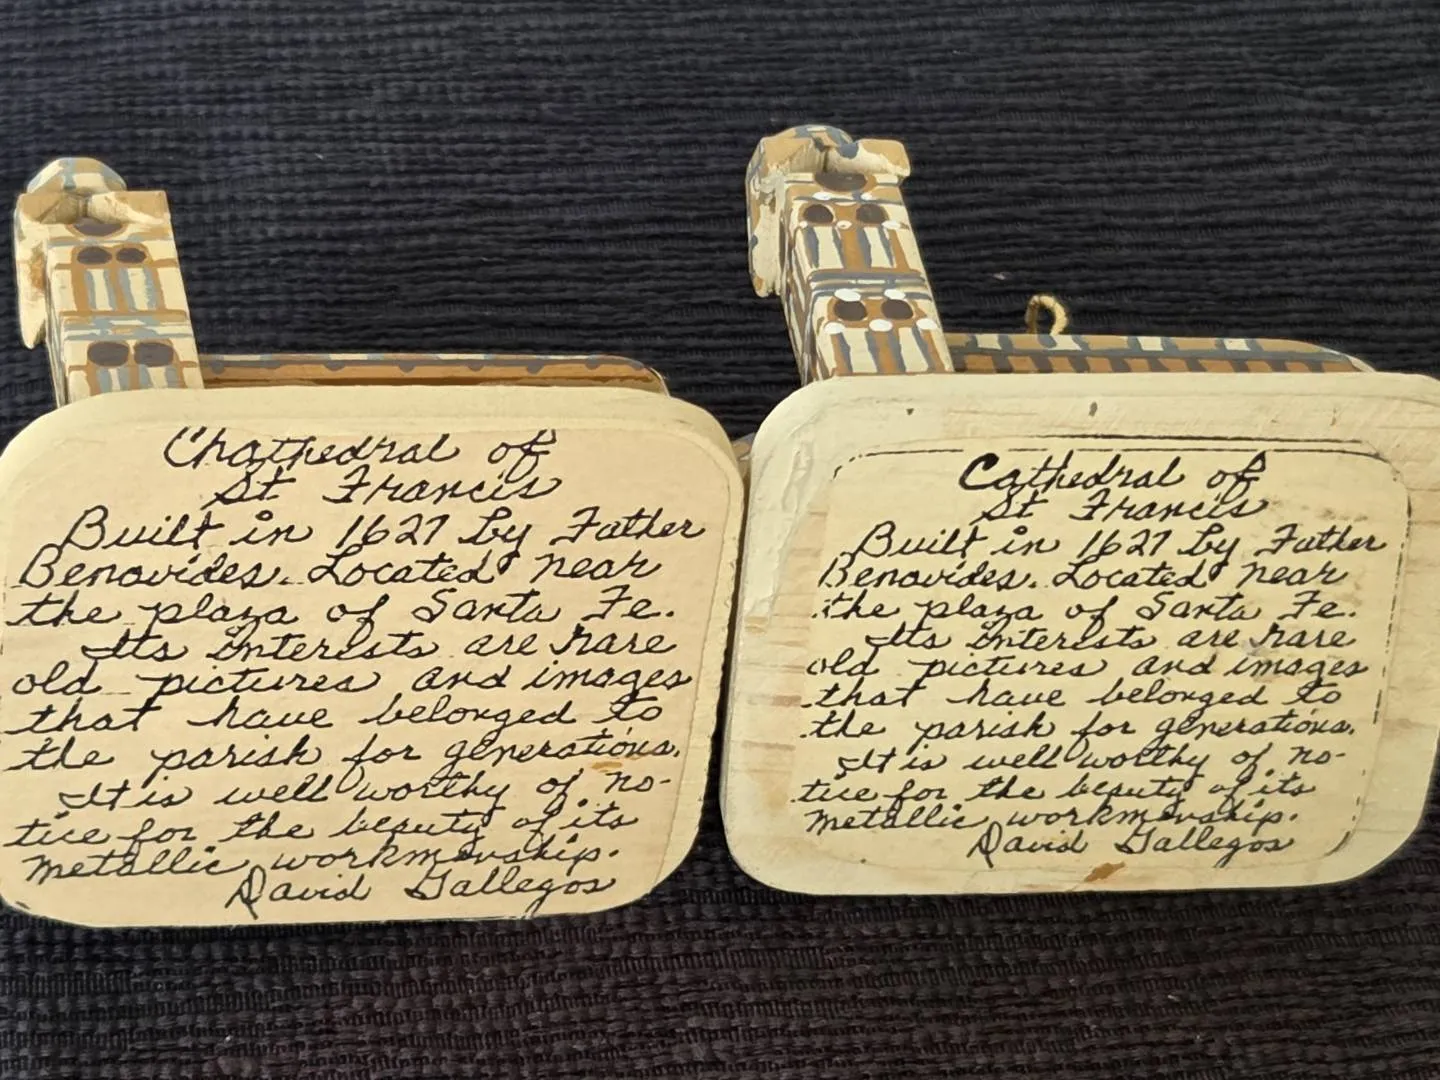 Chathedral of
St Francis
Built in 1627 by Father
Benavides. Located near
the plaza of Santa Fe.
Its interists are rare
old pictures and images
that have belonged to
the parish for generations.
It is well worthy of no-
tice for the beauty of its
metallic workmenship.
David Gallegos
Cathedral of
St Francis
Built in 1627 by Father
Benavides. Located near
the plaza of Santa Fe.
Its interists are rare
old pictures and images
that have belonged to
the parish for generations.
It is well worthy of no-
tice for the beauty of its
metallic workmenship.
David Gallegos